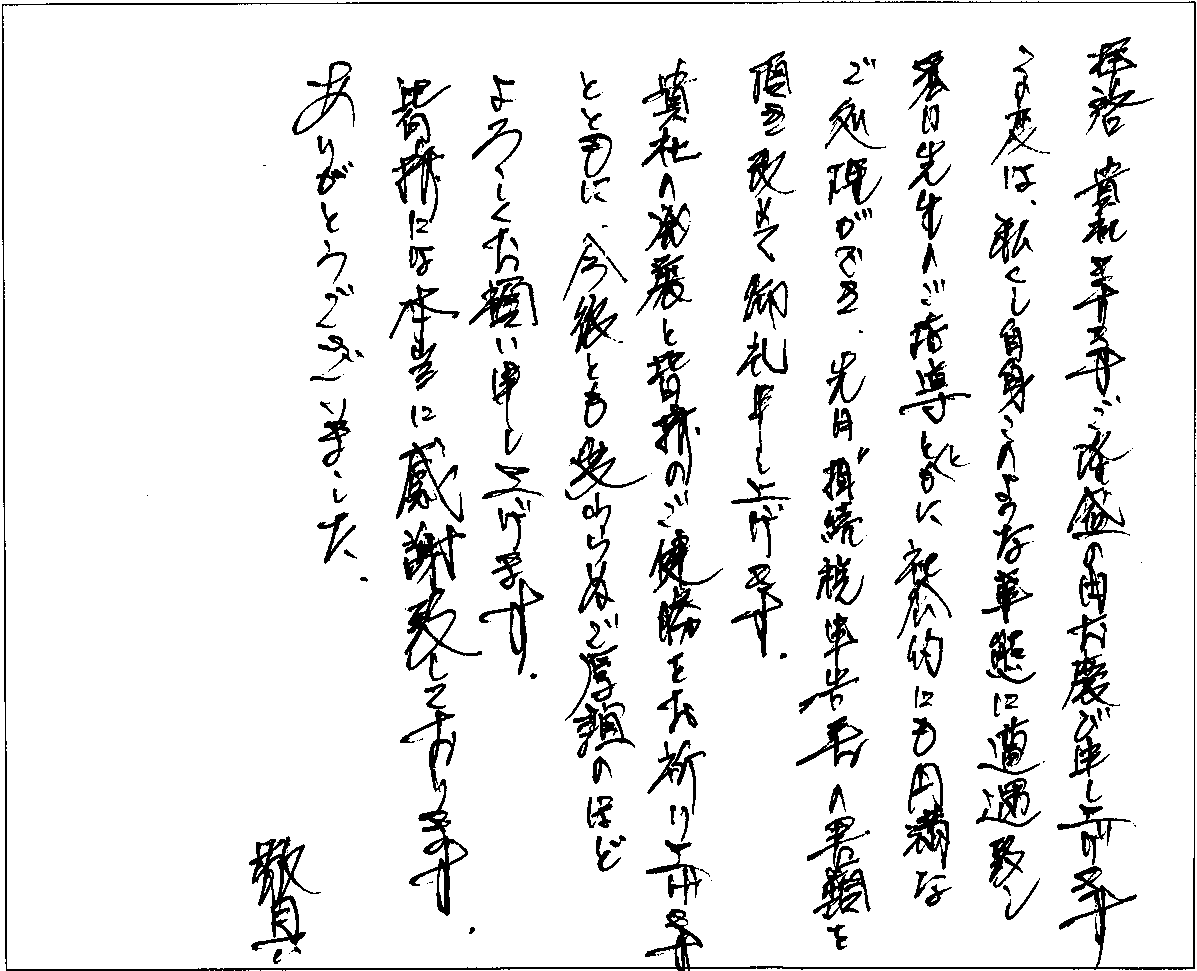 拝啓 貴社ますますご隆盛の由お慶び申し上げます
この度は、私くし自身このような事態に遭遇致し
春日先生のご指導とともに 社会的にも円満な
ご処理ができ、先日 相続税申告書の書類を
頂き改めて御礼申し上げます.
貴社の発展と皆様のご健勝をお祈り上げます
とともに、今後とも変わらぬご厚頼のほど
よろしくお願い申し上げます.
皆様には本当に感謝致しております.
ありがとうございました.
敬具